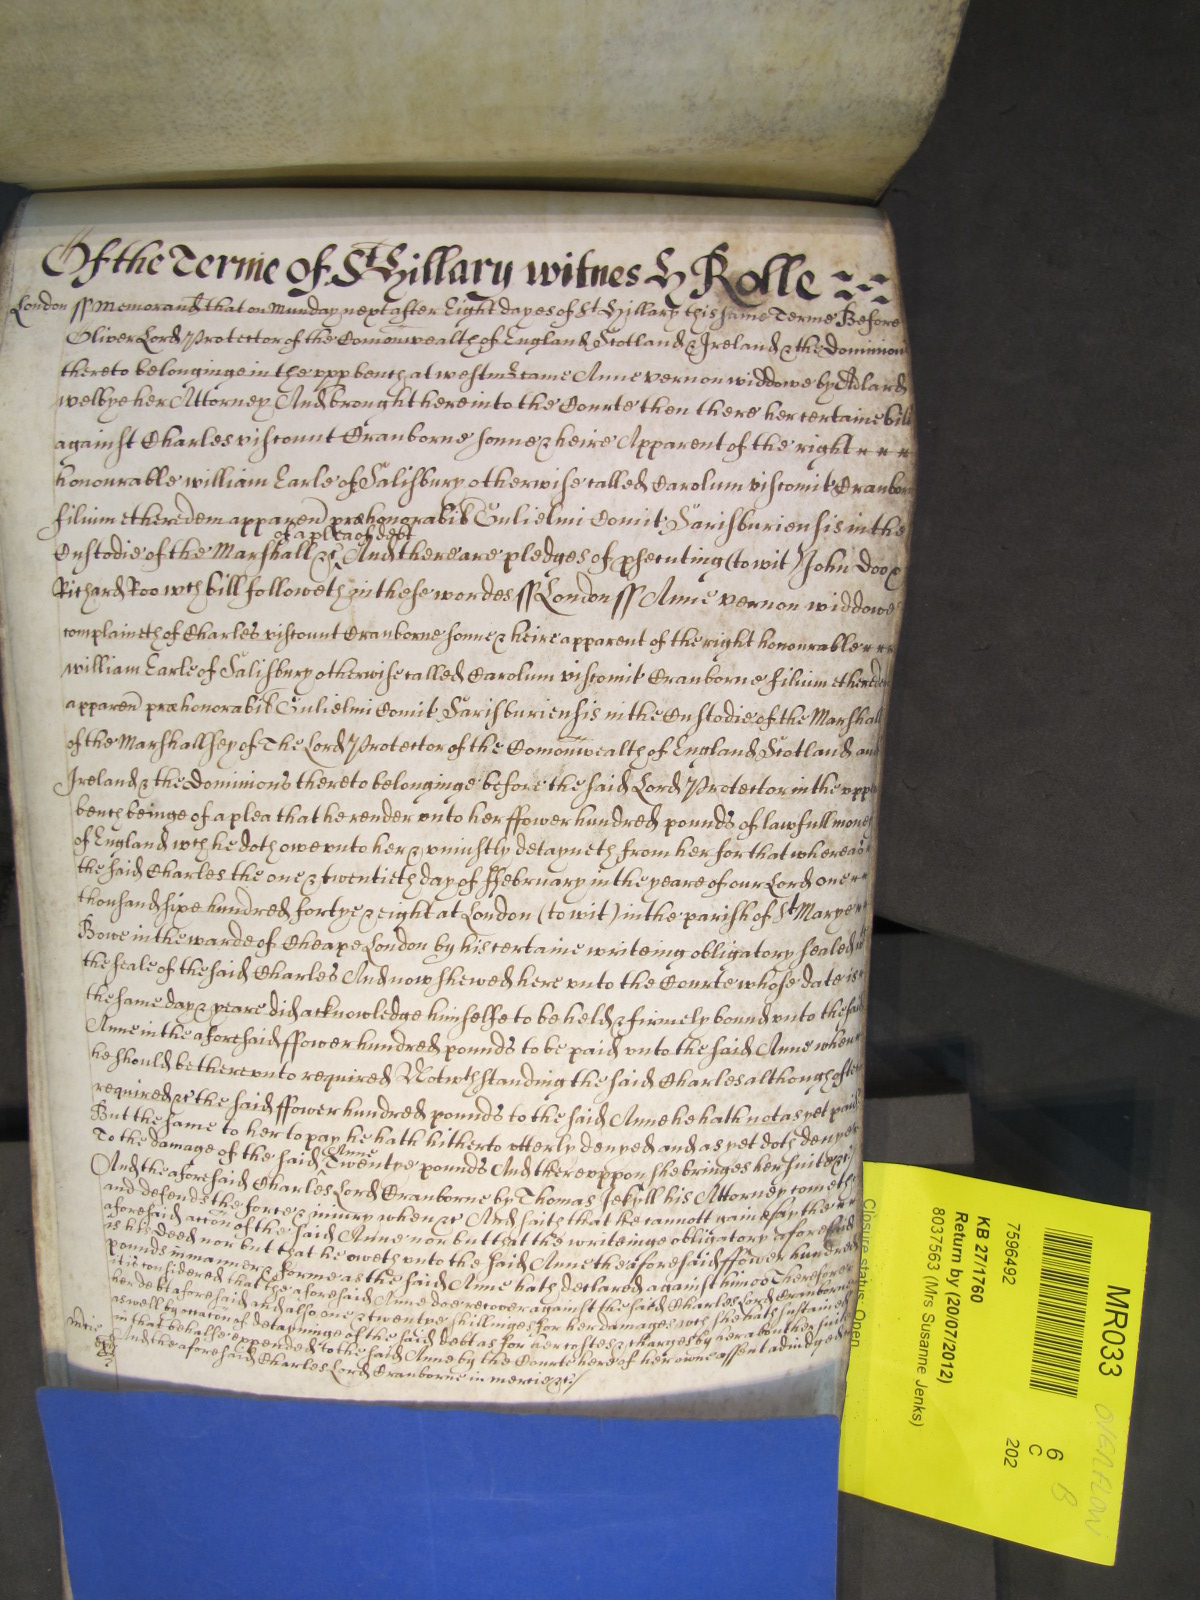 Of the Terme of St Hillary witnes H Rolle
London ss Memorand that on Munday next after Eight dayes of St Hillary this same Terme Before
Oliver Lord Protector of the Comonwealth of England Scotland & Ireland & the Dominions
thereto belonginge in the vpp bench at westmr came Anne vernon widdowe by Adlard
welbye her Attorney And brought here into the Courte then there her certaine bill
against Charles viscount Cranborne sonne & heire Apparent of the right
honourable william Earle of Salisbury otherwise called Carolum viscomit Cranborne
filium et heredem apparen præhonorabil Gulielmi Comit Sarisburiensis in the
of a plea of debt
Custodie of the Marshall &c And there are pledges of psecuting (to wit) John Doo &
Richard Roo wch bill followeth in these wordes ss London ss Anne vernon widdowe
complaineth of Charles viscount Cranborne sonne & heire apparent of the right honourable
william Earle of Salisbury otherwise called Carolum viscomit Cranborne filium et heredem
apparen præhonorabil Gulielmi Comit Sarisburiensis in the Custodie of the Marshall
of the Marshallsey of The Lord Protector of the Comonwealth of England Scotland and
Ireland & the Dominions thereto belonginge before the said Lord Protector in the vpp
bench beinge of a plea that he render vnto her ffower hundred pounds of lawfull money
of England wch he doth owe vnto her & vniustly detayneth from her for that whereas
the said Charles the one & twentieth day of ffebruary in the yeare of our Lord one
thousand sixe hundred fortye & eight at London (to wit) in the parish of St Marye
Bowe in the warde of Cheape London by his certaine writeing obligatory sealed wth
the seale of the said Charles And now shewed here vnto the Courte whose date is
the same day & yeare did acknowledge himselfe to be held & firmely bound vnto the said
Anne in the aforesaid ffower hundred pounds to be paid vnto the said Anne when
he should be therevnto required Notwthstanding the said Charles although often
required &c the said ffower hundred pounds to the said Anne he hath not as yet paid
But the same to her to pay he hath hitherto vtterly denyed and as yet doth denye
Anne
To the damage of the said Twentye pounds And therevppon she bringes her suite &c
And the aforesaid Charles Lord Cranborne by Thomas Jekyll his Attorney cometh
and defends the force & iniury when &c And saith that he cannott gainesay the
aforesaid accon of the said Anne nor but that the writeinge obligatory aforesaid
is his deed nor but that he oweth vnto the said Anne the aforesaid ffower hundred
pounds in manner & forme as the said Anne hath declared against him Therefore
it is considered that the aforesaid Anne doe recover against the said Charles Lord Cranborne
her debt aforesaid and also one & twentye shillinges for her damages wch she hath sustained
as well by occacon of detayninge of the said debt as for her costes & charges by her about her suite
in that behalfe expended to the said Anne by the Courte here of her owne assent adiudged
And the aforesaid Charles Lord Cranborne in mercie &c
Mcie
MR033
OVERFLOW
6
C
B
202
7596492
KB 27/1760
Return by (20/07/2012)
8037563 (Mrs Susanne Jenks)
Closure status: Open